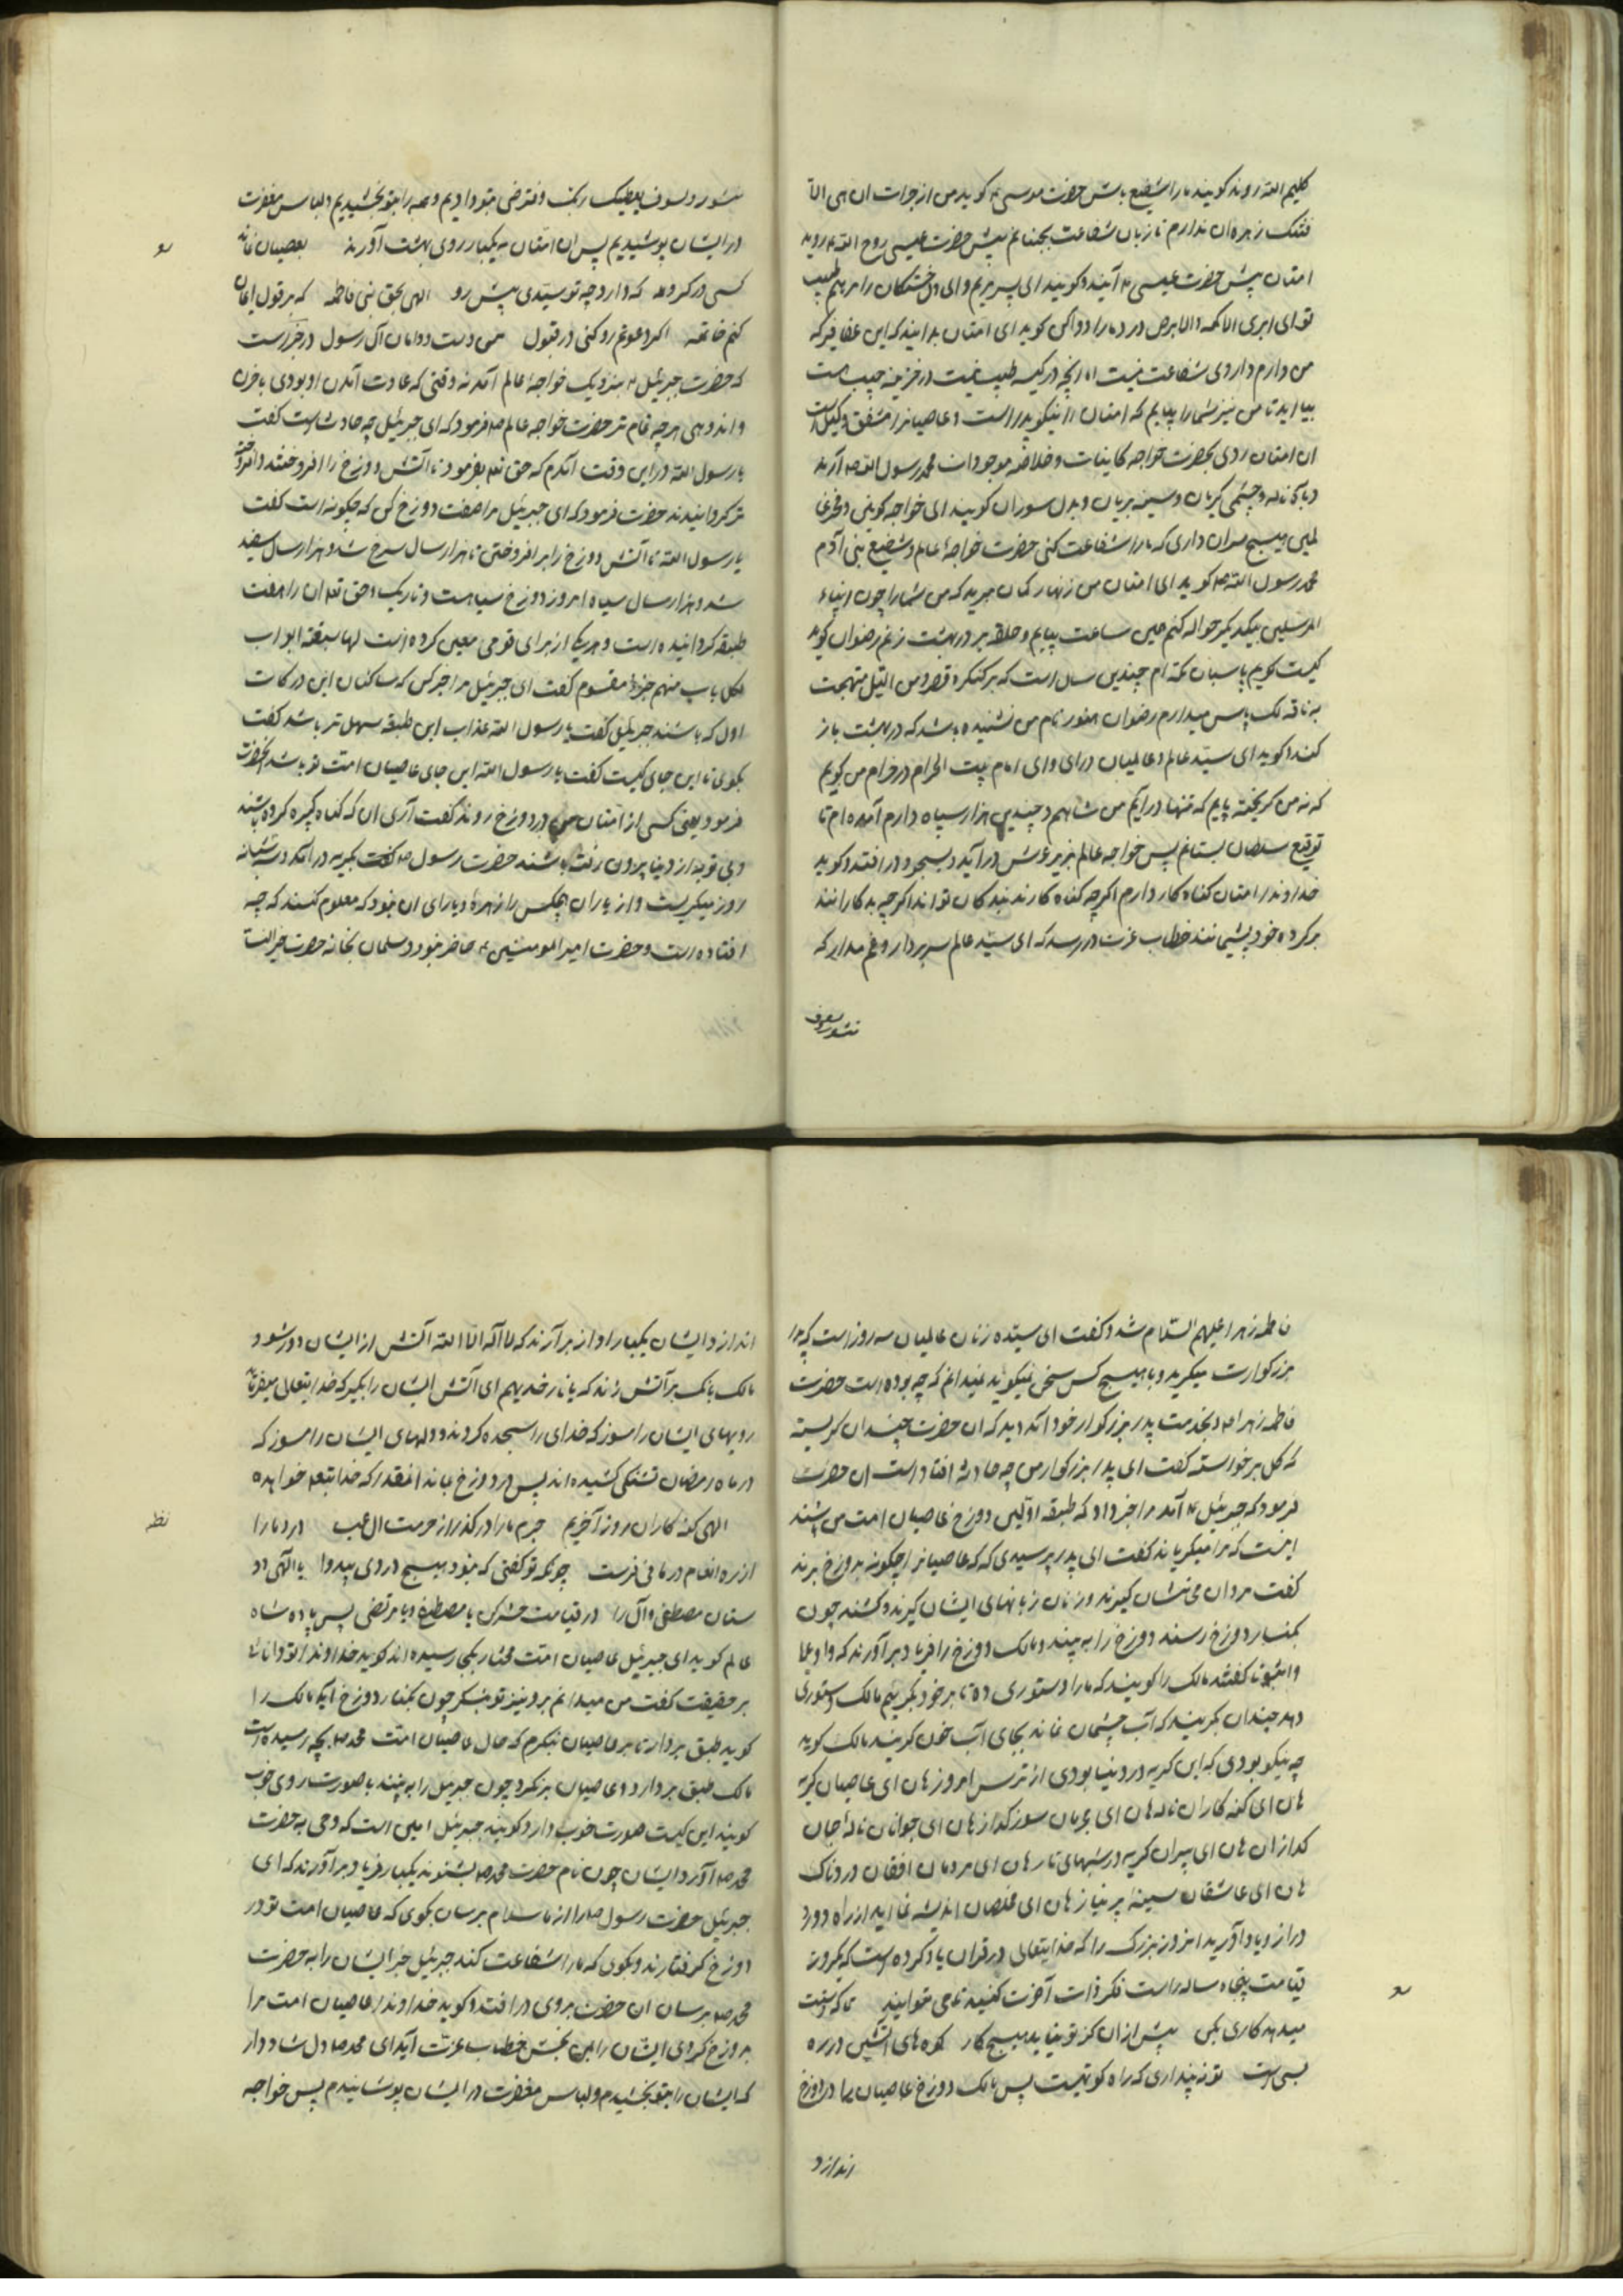 کلیم الله روند کویند ما را شفیع باش حضرت موسی ع کوید من از جرات ان هی الا
فتنتک زهره ان ندارم تا زبان شفاعت بجنبانم پیش حضرت عیسی روح الله ع روید
امتان پیش حضرت عیسی ع آیند و کویند ای پسر مریم و ای دل خستکان را مرهم طبیب
تو ای ابری الاکمه و الابرص درد ما را دوا کن کوید ای امتان بدانید که این عقاقیر که
من دارم داروی شفاعت نیست اما انچه در کیسه طبیب نیست در خزینه حبیب هست
بیایید تا من نیز شما را بیایم که امتان را نیکو پدر است و عاصیانرا مشفق وکیل است
ان امتان روی بحضرت خواجه کاینات و خلاصه موجودات محمد رسول الله ص آرند
با ناله و چشمی کریان و سینه بریان و بدل سوزان کویند ای خواجه کونین و فخر
هیچ سران داری که ما را شفاعت کنی حضرت خواجهٔ عالم و شفیع بنی آدم
محمد رسول الله ص کوید ای امتان من زنهار کمان مبرید که من شما را چون انبیاء
المرسلین بیکدیکر حواله کنم همین ساعت بیایم و حلقه بر در بهشت زنم رضوان کوید
کیست کویم پاسبان مکه ام چندین سال است که بر کنکره قصر و من اللیل فتهجد
به نافلة لک پاس میدارم رضوان هنوز نام من نشنیده باشد که در بهشت باز
کند و کوید ای سید عالم و عالمیان درای و ای امام بیت الحرام در خرام من کویم
که نه من کریخته پایم که تنها درایم من شاهم و چندین هزار سپاه دارم آمده ام تا
توقیع سلطان بستانم پس خواجه عالم بزیر عرش درآید و بسجود در افتد و کوید
خداوندا امتان کناه کار دارم اکرچه کناه کارند بندکان تواند اکرچه بد کارانند
بر کرده خود پشیمانند خطاب عزت در رسد که ای سید عالم سر بردار و غم مدار که
منشور و لسوف
منشور و لسوف یعطیک ربک فترضی بتو دادیم و همه را بتو بخشیدیم و لباس مغفرت
در ایشان پوشیدیم پس ان امتان به یکبار روی بهشت آورند بعصیان نماند
کسی در کرو که دارد چه تو سیدی پیش رو الهی بحق بنی فاطمه که بر قول ایمان
کنم خاتمه اکر دعوتم رد کنی در قبول من و دست و دامان آل رسول در خبر است
که حضرت جبرئیل ع بنزدیک خواجه عالم آمد نه وقتی که عادت آمدن او بودی با حزن
و اندوهی هر چه تمام تر حضرت خواجه عالم ص فرمود که ای جبرئیل چه حادث است کفت
یا رسول الله در این وقت آمدم که حق تعه بفرمود تا آتش دوزخ را افروختند و افروخته
تر کردانیدند حضرت فرمود که ای جبرئیل مرا صفت دوزخ کن که چکونه است کفت
یا رسول الله تا آتش دوزخ را برافروختی تا هزار سال سرخ شد و هزار سال سفید
شد و هزار سال سیاه امروز دوزخ سیاهست و تاریک و حق تعه ان را هفت
طبقه کردانیده است و هر یک از برای قومی معین کرده است لها سبعة ابواب
لکل باب منهم جزءٌ مقسوم کفت ای جبرئیل مرا خبر کن که ساکنان این درکات
اول که باشند جبرئیل کفت یا رسول الله عذاب این طبقه سهل تر باشد کفت
بکوی تا این جای کیست کفت یا رسول الله این جای عاصیان امت تو باشد آنحضرت
فرمود یعنی کسی از امتان من در دوزخ روند کفت آری ان که کناه کبیره کرده باشند
و بی توبه از دنیا بیرون رفته باشند حضرت رسول ص کفت بکریه درآمد و سه شبانه
روز میکریست و از یاران هیچکس را زهره و یارای ان نبود که معلوم کنند که چه
افتاده است و حضرت امیر المومنین ع حاضر نبود و سلمان بخانه حضرت خیر النسا
فاطمه زهرا علیهم السلام شد و کفت ای سیده زنان عالمیان سه روز است که پدر
بزرکوارت میکرید و با هیچ کس سخن نمیکوید نمیدانم که چه بوده است حضرت
فاطمه زهرا ع بخدمت پدر بزرکوار خود آمد دید که ان حضرت چندان کریسته
که کل برخواسته کفت ای پدر بزرکوار من چه حادثه افتاد است ان حضرت
فرمود که جبرئیل ع آمد مرا خبر داد که طبقه اولین دوزخ عاصیان امت من باشند
اینست که مرا میکریاند کفت ای پدر پرسیدی که عاصیانرا چکونه بدوزخ برند
کفت مردان محاسن کیرند و زنان زبانهای ایشان کیرند و کشند چون
بکنار دوزخ رسند دوزخ را به بینند و مالک دوزخ را فریاد برآورند که واویلا
واثبورا کفتند مالک را کویند که ما را دستوری ده تا بر خود بکرییم مالک دستوری
دهد چندان بکریند که آب چشمان نماند بجای آب خون کریند مالک کوید
چه نیکو بودی که این کریه در دنیا بودی از ترس امروز هان ای عاصیان کریه
هان ای کنه کاران ناله هان ای مجرمان سوز کداز هان ای جوانان ناله جان
کدازان هان ای پیران کریه در شبهای تار هان ای مردمان افغان دردناک
هان ای عاشقان سینه پر نیاز هان ای مخلصان اندیشه نمایید از راه دور و
دراز و یاد آورید از روز بزرک را که خدایتعالی در قران یاد کرده است که یکروز
قیامت پنجاه ساله راست فکر ذات آخرت کنید تا می توانید تا که دستت
میدهد کاری بکن پیش از ان کز تو نیاید هیچ کار کوه های آتشین در ره
بسی است تو نپنداری که راه کوتهست پس مالک دوزخ عاصیان را در دوزخ
اندازد
اندازد ایشان بیکبار اواز برآرند که لا اله الا الله آتش از ایشان دور شود
مالک بانک بر آتش زند که یا نار خذیهم ای آتش ایشان را بکیر که خدایتعالی میفرماید
رویهای ایشان را مسوز که خدای را سجده کردند و دلهای ایشان را مسوز که
در ماه رمضان تشنکی کشیده اند پس در دوزخ بمانند انقدر که خدایتعه خواهده
الهی کنه کاران روز آخریم جرم ما را در کذر از حرمت ال عبا درد ما را
از ره انعام درمانی فرست چونکه تو کفتی که نبود هیچ دردی بیدوا یا الهی دو
ستان مصطفی و آل را در قیامت حشر کن با مصطفی و با مرتضی پس پادشاه
عالم کوید ای جبرئیل عاصیان امت مختار بکجا رسیده اند کوید خداوندا تو دانا تر
بر حقیقت کفت من میدانم برو نیز تو بنکر چون بکنار دوزخ آید مالک را
کوید طبق بردار تا بر عاصیان بنکرم که حال عاصیان امت محمد ص بچه رسیده است
مالک طبق بردارد و عاصیان بنکرد چون جبرئیل را به بینند با صورت روی خوب
کویند این کیست صورت خوب دارد کویند جبرئیل امین است که وحی به حضرت
محمد ص آورد ایشان چون نام حضرت محمد ص بشنوند بیکبار فریاد برآورند که ای
جبرئیل حضرت رسول ص را از ما سلام برسان بکوی که عاصیان امت تو در
دوزخ کرفتارند و بکوی که ما را شفاعت کند جبرئیل خبر ایشان را به حضرت
محمد ص برسان ان حضرت بروی در افتد و کوید خداوندا عاصیان امت مرا
بدوزخ کردی ایشان را بمن بخش خطاب عزت آید ای محمد ص دل شاد دار
که ایشان را بتو بخشیدم و لباس مغفرت در ایشان پوشانیدم پس خواجه